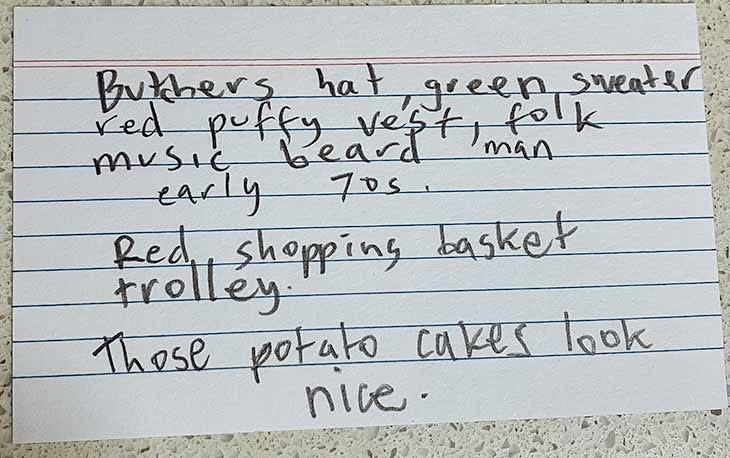 Buthers hat, green sweater
red puffy vest, folk
music beard, man
early 70s.
Red shopping basket
trolley.
Those potato cakes look
nice.